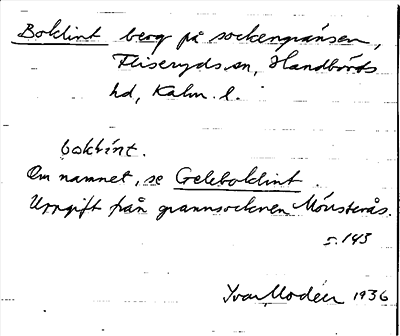 Boklint berg på sockengränsen,
Fliseryds sn, Handbörds
hd, Kalm. l.
boklint.
Om namnet, se Geleboklint.
Uppgift från grannsocknen Mönsterås.
s. 143
Ivar Modéer 1936